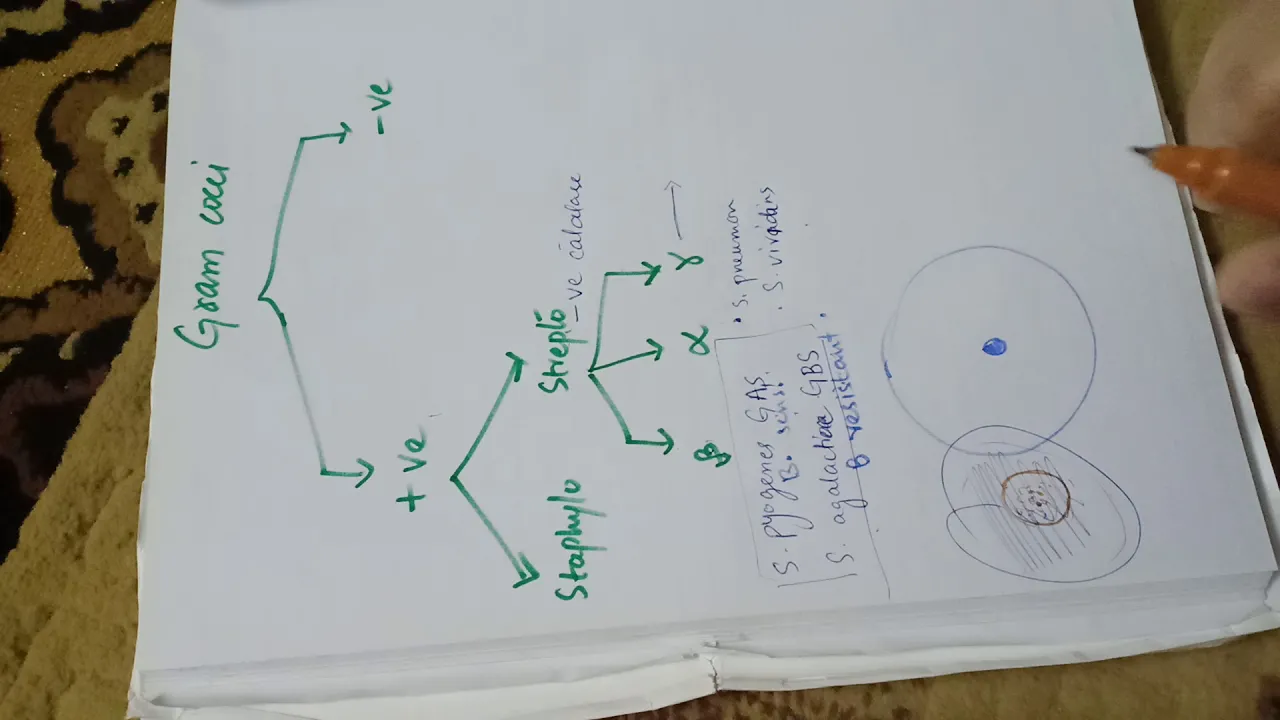 Gram cocci
+ve
-ve
Staphylo
Strepto
-ve catalase
β
α
γ
S. pyogenes GAS
B. sens.
S. agalactiae GBS
B resistant
• S. pneumon
• S. viridans